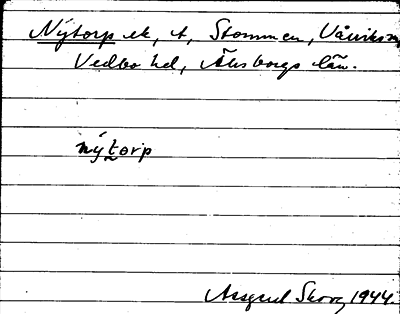 Nýtorp ek, t, Stommen, Vårviks sn,
Vedbo hd, Älvsborgs län.
nýtorp
Assgerd Skog, 1944.